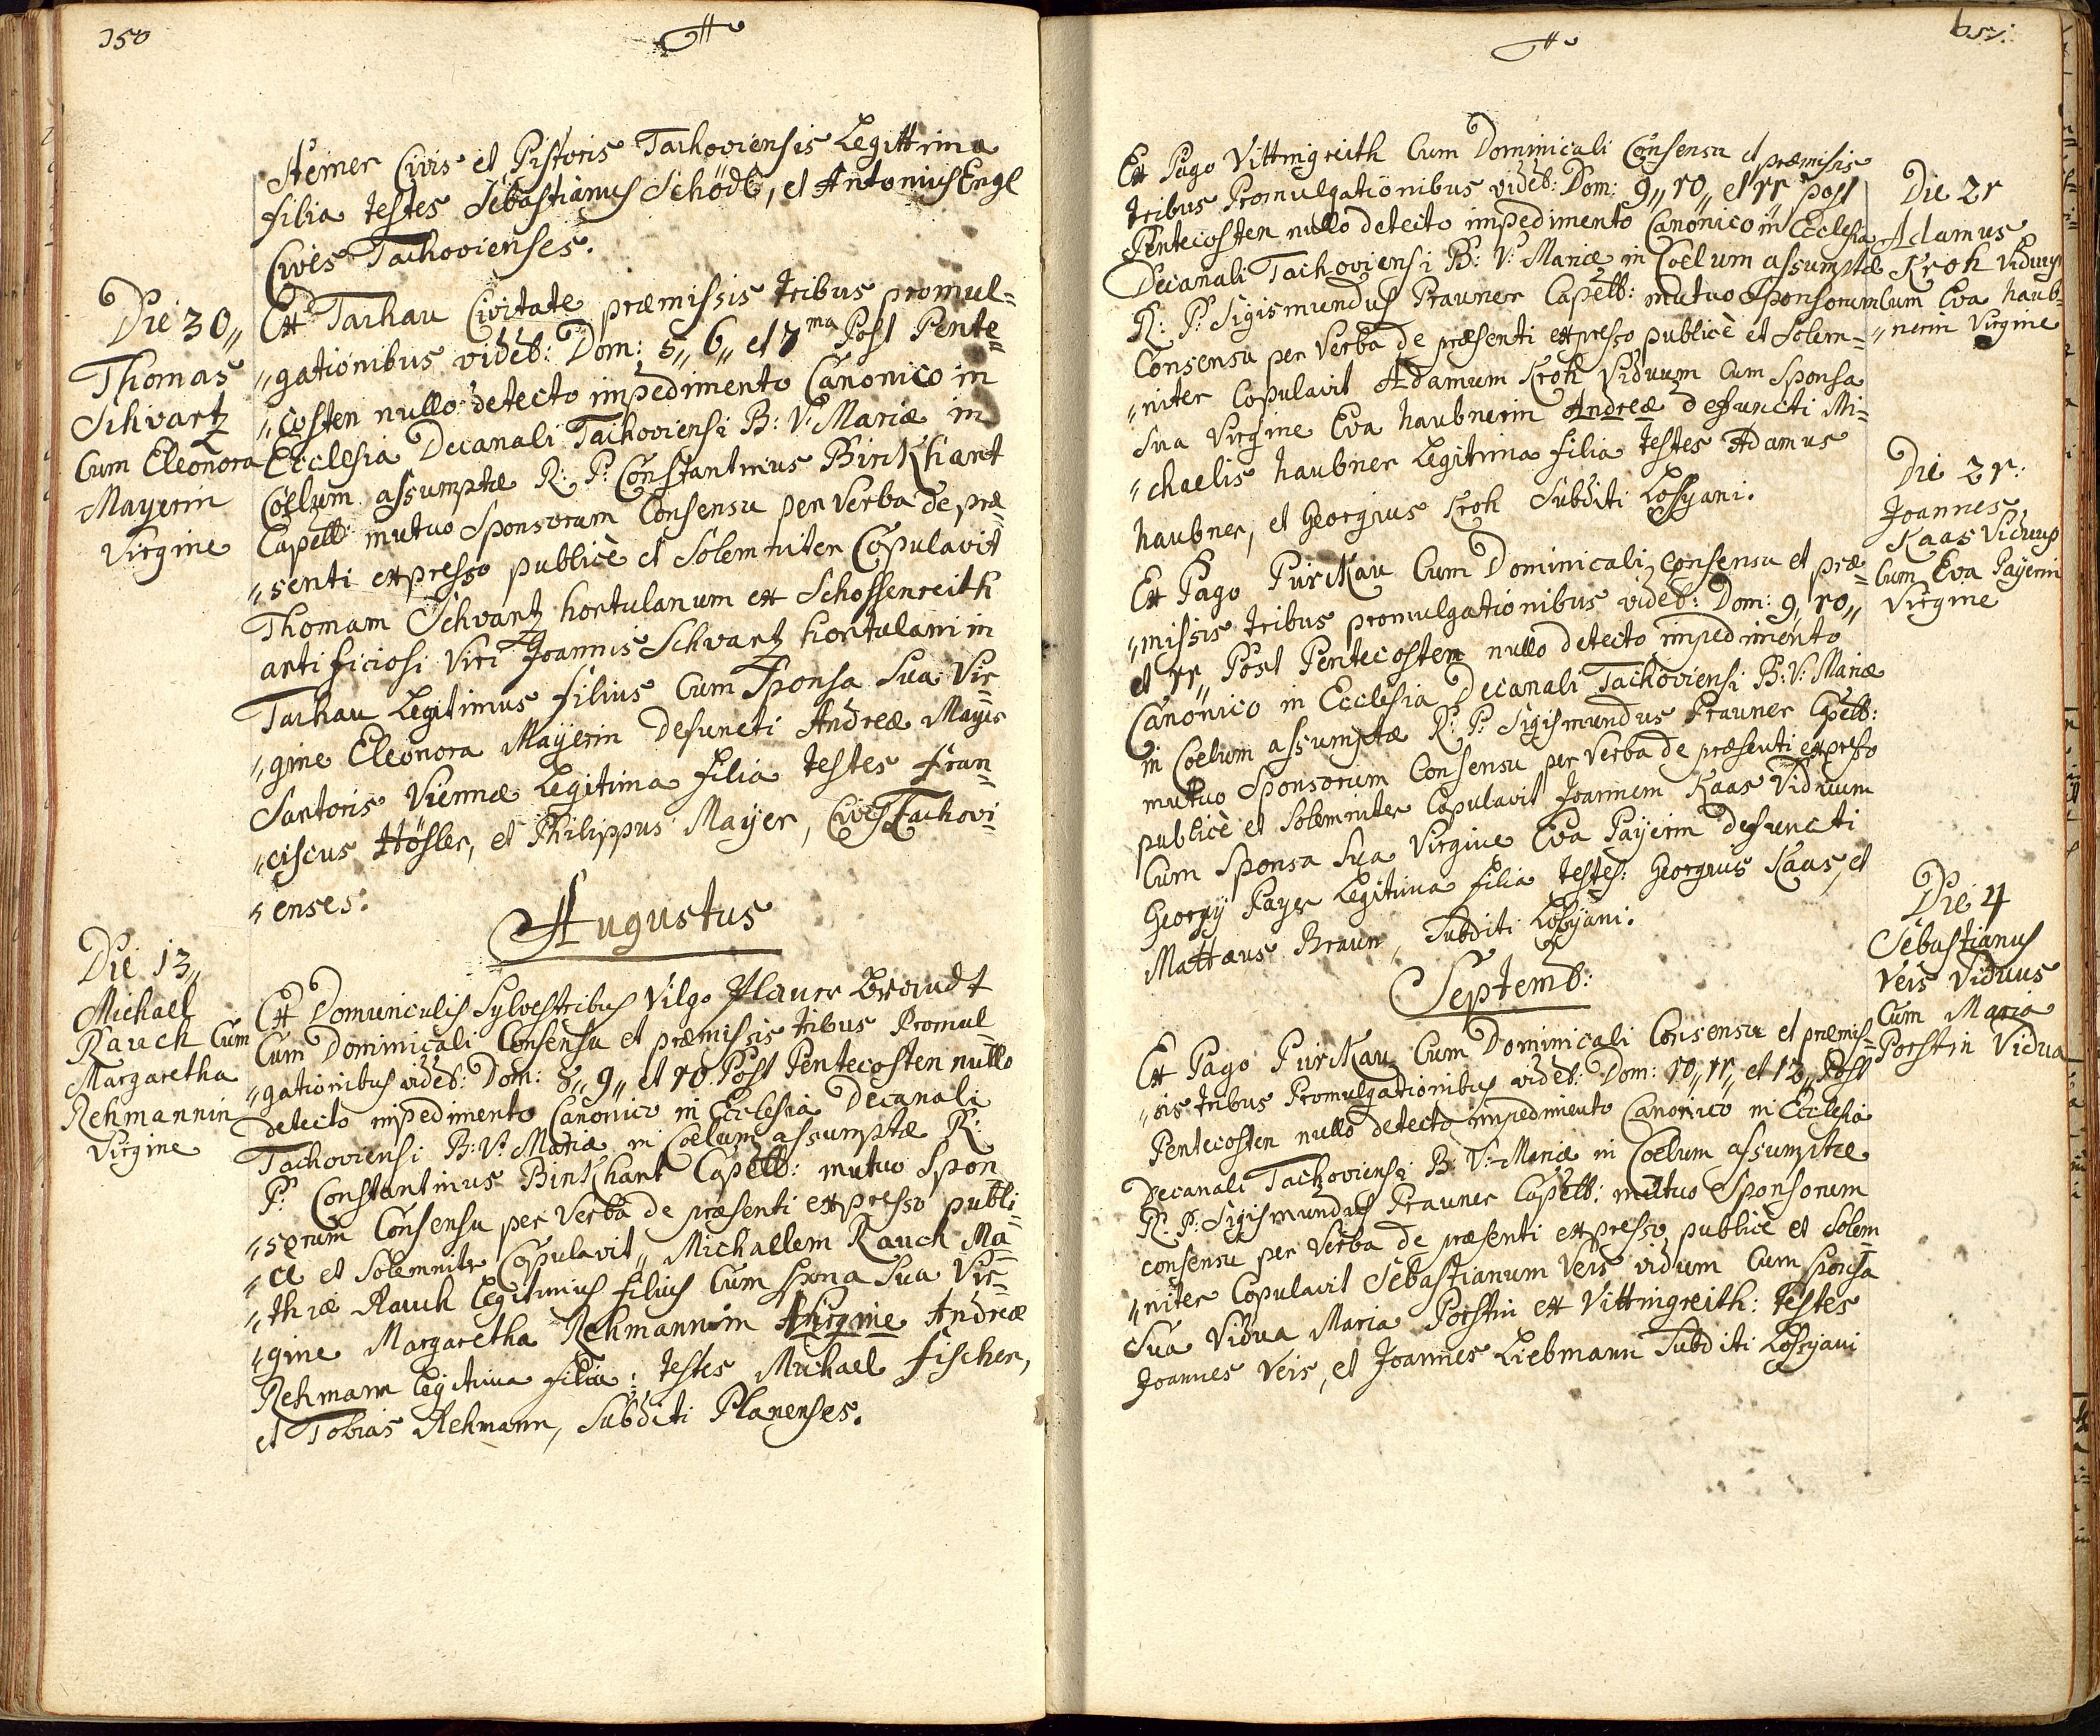 150
Steiner Civis et Pistoris Tachoviensis Legittima
filia testes Sebastianus Schödl, et Antonius Engl
Cives Tachovienses.
Die 30„
Thomas
Schvartz
Cum Eleonora
Mayerin
Virgine
Ex Tachau Civitate præmissis tribus promul=
„gationibus videl: Dom: 5„ 6„ et 7ma Post Pente=
„costen nullo detecto impedimento Canonico in
Ecclesia Decanali Tachoviensi B: V: Mariæ in
Coelum assumptæ R: P: Constantinus Birckhant
Capell: mutuo Sponsorum Consensu per Verba de præ=
„senti expresso publicè et Solemniter Copulavit
Thomam Schvartz hortulanum ex Schossenreith
artificiosi Viri Joannis Schvartz hortulani in
Tachau Legitimus filius Cum Sponsa Sua Vir=
„gine Eleonora Mayerin Defuncti Andreæ Mayer
Sartoris Viennæ Legitima filia testes Fran=
„ciscus Hösler, et Philippus Mayer, Cives Tachovi=
„enses.
Augustus
Die 13„
Michael
Rauch Cum
Margaretha
Rehmannin
Virgine
Ex Domunculis Sylvestribus Vilgo Planer Brandt
Cum Dominicali Consensu et præmissis tribus Promul=
„gationibus videl: Dom: 8„ 9„ et 10 Post Pentecosten nullo
detecto impedimento Canonico in Ecclesia Decanali
Tachoviensi B: V: Mariæ in Coelum assumptæ R:
P: Constantinus Birckhant Capell: mutuo Spon=
„sorum Consensu per Verba de præsenti expresso publi=
„ce et Solemnitr Copulavit„ Michaelem Rauch Ma=
„thiæ Rauch Legitimus filius Cum spona Sua Vir=
„gine Margaretha Rehmannin Virgine Andreæ
Rehmann legitima filia: testes Michael fischer,
et Tobias Rehmann, Subditi Planenses.
151.
Ex Pago Vittingreith Cum Dominicali Consensu et præmissis
tribus Promulgationibus videl: Dom: 9„ 10„ et 11 post
Pentecosten nullo detecto impedimento Canonico in Ecclesia
Decanali Tachoviensi B: V: Mariæ in Coelum assumptæ
R: P: Sigismundus Prauner Capell: mutuo Sponsorum
Consensu per Verba de præsenti expresso publicè et Solem=
„niter Copulavit Adamum Kroh Viduum Cum Sponsa
Sua Virgine Eva haubnerin Andreæ defuncti Mi=
„chaelis haubner Legitima filia testes Adamus
haubner, et Georgius Kroh Subditi Losyani.
Die 21
Adamus
Kroh Viduus
Cum Eva haub=
„nerin Virgine
Ex Pago Purckau Cum Dominicali Consensu et præ=
„missis tribus promulgationibus videl: Dom: 9„ 10„
et 11„ Post Pentecosten nullo detecto impedimento
Canonico in Ecclesia Decanali Tachoviensi B: V: Mariæ
in Coelum assumptæ R: P: Sigismundus Prauner Capell:
mutuo Sponsorum Consensu per Verba de præsenti expresso
publicè et Solemniter Copulavit Joannem Kaas Viduum
Cum Sponsa Sua Virgine Eva Payerin defuncti
Georgij Payer Legitima filia testes: Georgius Kaas, et
Mattæus Braun, Subditi Losyani.
Die 21.
Joannes
Kaas Viduus
Cum Eva Payerin
Virgine
Septemb:
Ex Pago Purckau Cum Dominicali Consensu et præmis=
„sis tribus Promulgationibus videl: Dom: 10„ 11„ et 12„ Post
Pentecosten nullo detecto impedimento Canonico in Ecclesia
Decanali Tachoviensi B: V: Mariæ in Coelum assumptæ
R: P: Sigismundus Prauner Capell: mutuo Sponsorum
consensu per Verba de præsenti expresso publicè et Solem=
„niter Copulavit Sebastianum Veis vidum Cum sponsa
Sua Vidua Maria Porstin ex Vittingreith: testes
Joannes Veis, et Joannes Liebmann Subditi Losyani
Die 4
Sebastianus
Veis Viduus
Cum Maria
Porstin Vidua